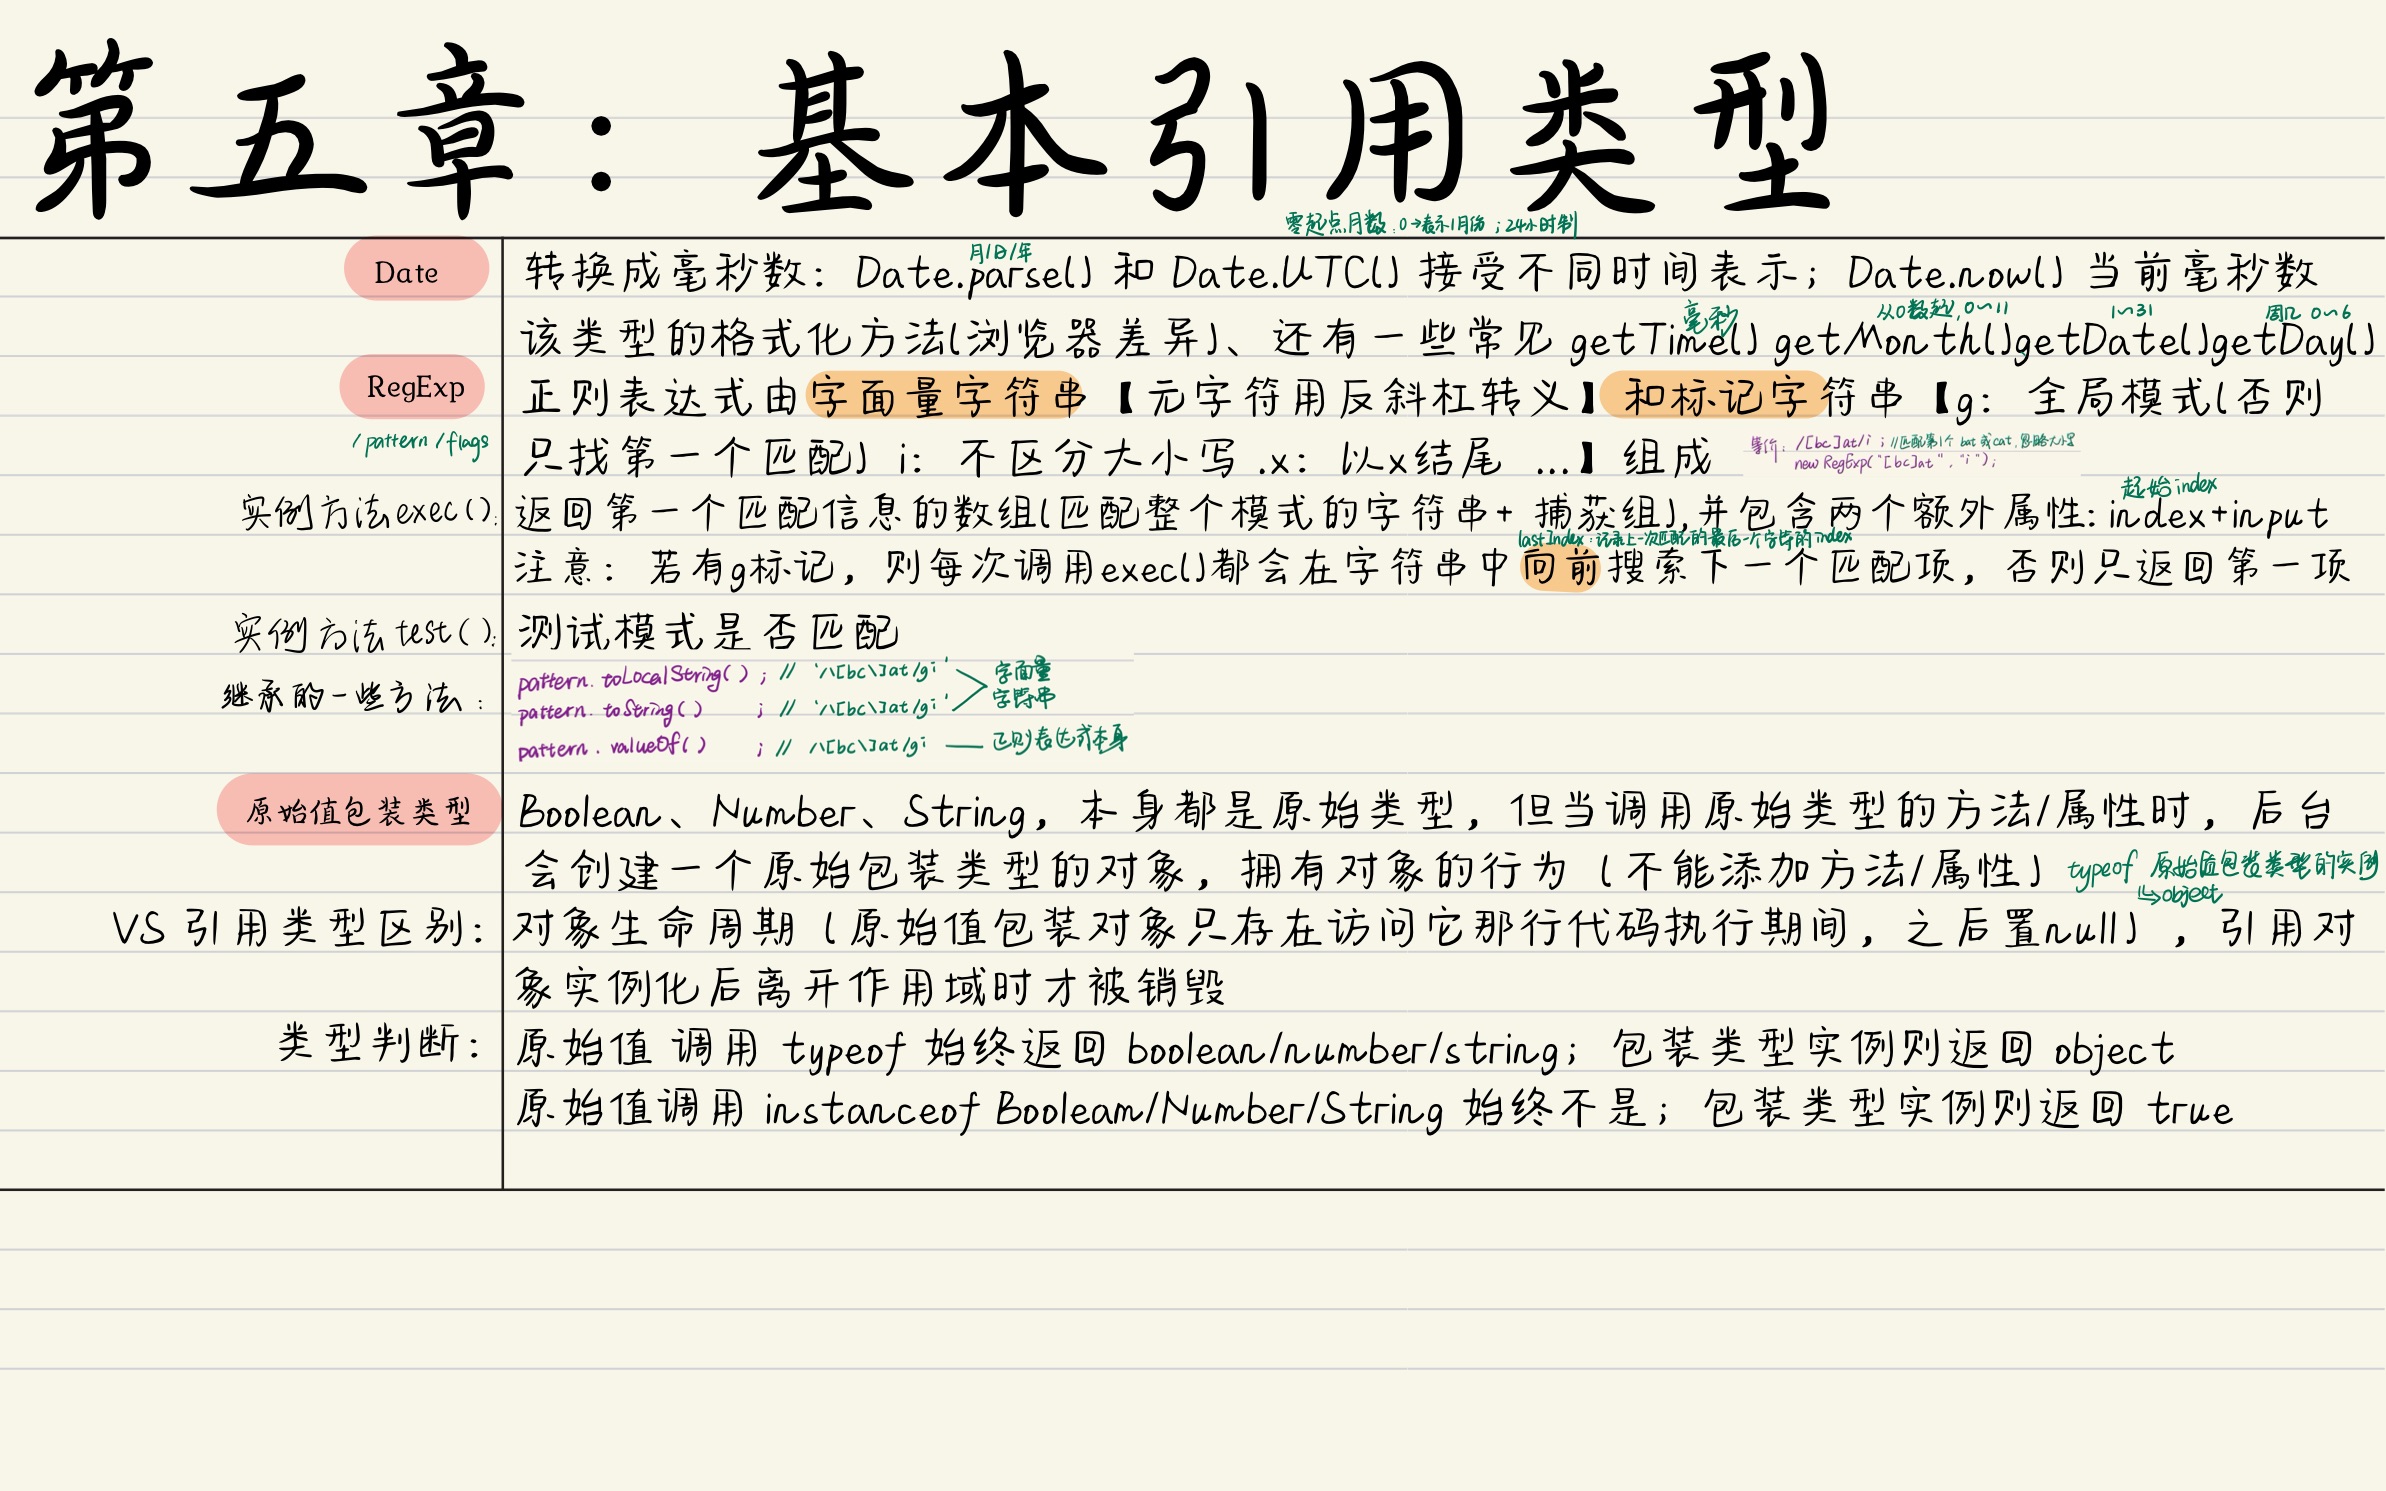 第五章：基本引用类型
零起点月数：0→表示1月份；24小时制
月/日/年
Date 转换成毫秒数：Date.parse() 和 Date.UTC() 接受不同时间表示；Date.now() 当前毫秒数
毫秒 从0数起，0～11 1～31 周几 0～6
该类型的格式化方法(浏览器差异)、还有一些常见 getTime() getMonth()getDate()getDay()
RegExp 正则表达式由字面量字符串【元字符用反斜杠转义】和标记字符串【g：全局模式(否则
/pattern/flags 只找第一个匹配) i：不区分大小写 .x：以x结尾 ...】组成
等价：/[bc]at/i；//匹配第1个 bat 或cat，忽略大小写
new RegExp("[bc]at", "i");
起始index
实例方法exec()： 返回第一个匹配信息的数组(匹配整个模式的字符串+ 捕获组),并包含两个额外属性：index+input
lastIndex：记录上一次匹配的最后一个字符的index
注意：若有g标记，则每次调用exec()都会在字符串中向前搜索下一个匹配项，否则只返回第一项
实例方法test()： 测试模式是否匹配
继承的一些方法：
pattern.toLocalString(); // '/\[bc\]at/gi' 字面量
pattern.toString() ; // '/\[bc\]at/gi' 字符串
pattern.valueOf() ; // /\[bc\]at/gi —— 正则表达式本身
原始值包装类型 Boolean、Number、String，本身都是原始类型，但当调用原始类型的方法/属性时，后台
会创建一个原始包装类型的对象，拥有对象的行为（不能添加方法/属性） typeof 原始值包装类型的实例
↳object
VS 引用类型区别： 对象生命周期（原始值包装对象只存在访问它那行代码执行期间，之后置null），引用对
象实例化后离开作用域时才被销毁
类型判断： 原始值 调用 typeof 始终返回 boolean/number/string；包装类型实例则返回 object
原始值调用 instanceof Booleam/Number/String 始终不是；包装类型实例则返回 true